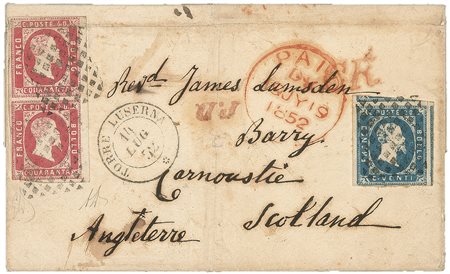 C. POSTE 40
FRANCO
BOLLO
C. QUARANTA
C. POSTE 40
FRANCO
BOLLO
C. QUARANTA
TORRE LUSERNA
LUG
52
PAID
JY 19
1852
P.D.
C. POSTE 20
FRANCO
BOLLO
C. VENTI
Revd James Lumsden
Barry
Carnoustie
Scotland
Angleterre